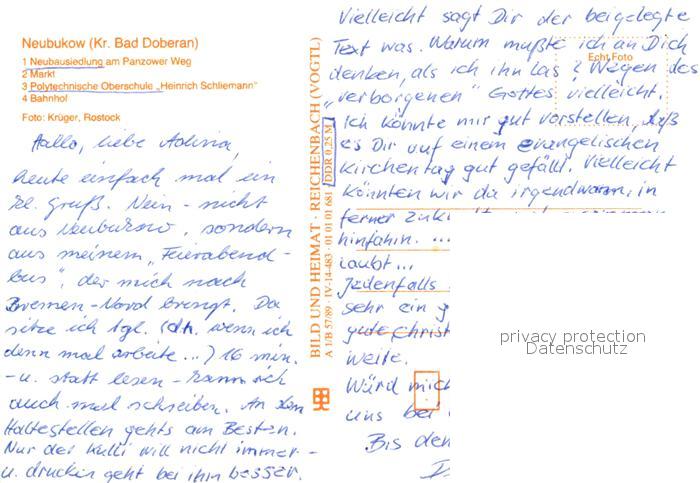 Neubukow (Kr. Bad Doberan)
1 Neubausiedlung am Panzower Weg
2 Markt
3 Polytechnische Oberschule „Heinrich Schliemann“
4 Bahnhof
Foto: Krüger, Rostock
Hallo, liebe Adina,
heute einfach mal ein
kl. Gruß. Nein - nicht
aus Neubukow, sondern
aus meinem „Feierabend-
bus“, der mich nach
Bremen-Nord bringt. Da
sitze ich tgl. (dh. wenn ich
denn mal arbeite...) 16 min.
- u. statt lesen - kann ich
auch mal schreiben. An den
Haltestellen gehts am Besten.
Nur der Kulli will nicht immer -
u. drucken geht bei ihm besser.
BILD UND HEIMAT · REICHENBACH (VOGTL)
A 1/B 57/89 · IV-14-483 · 01 01 01 681 DDR 0,25 M
Echt Foto
Vielleicht sagt Dir der beigelegte
Text was. Warum mußte ich an Dich
denken, als ich ihn las? Wegen des
„verborgenen“ Gottes vielleicht.
Ich könnte mir gut vorstellen, daß
es Dir auf einem evangelischen
Kirchentag gut gefällt. Vielleicht
könnten wir da irgendwann, in
ferner
hinfahrn. ...
laubt...
Jedenfalls
sehr ein
gute Christ
weite.
Würd mich
uns bei
Bis den
privacy protection
Datenschutz